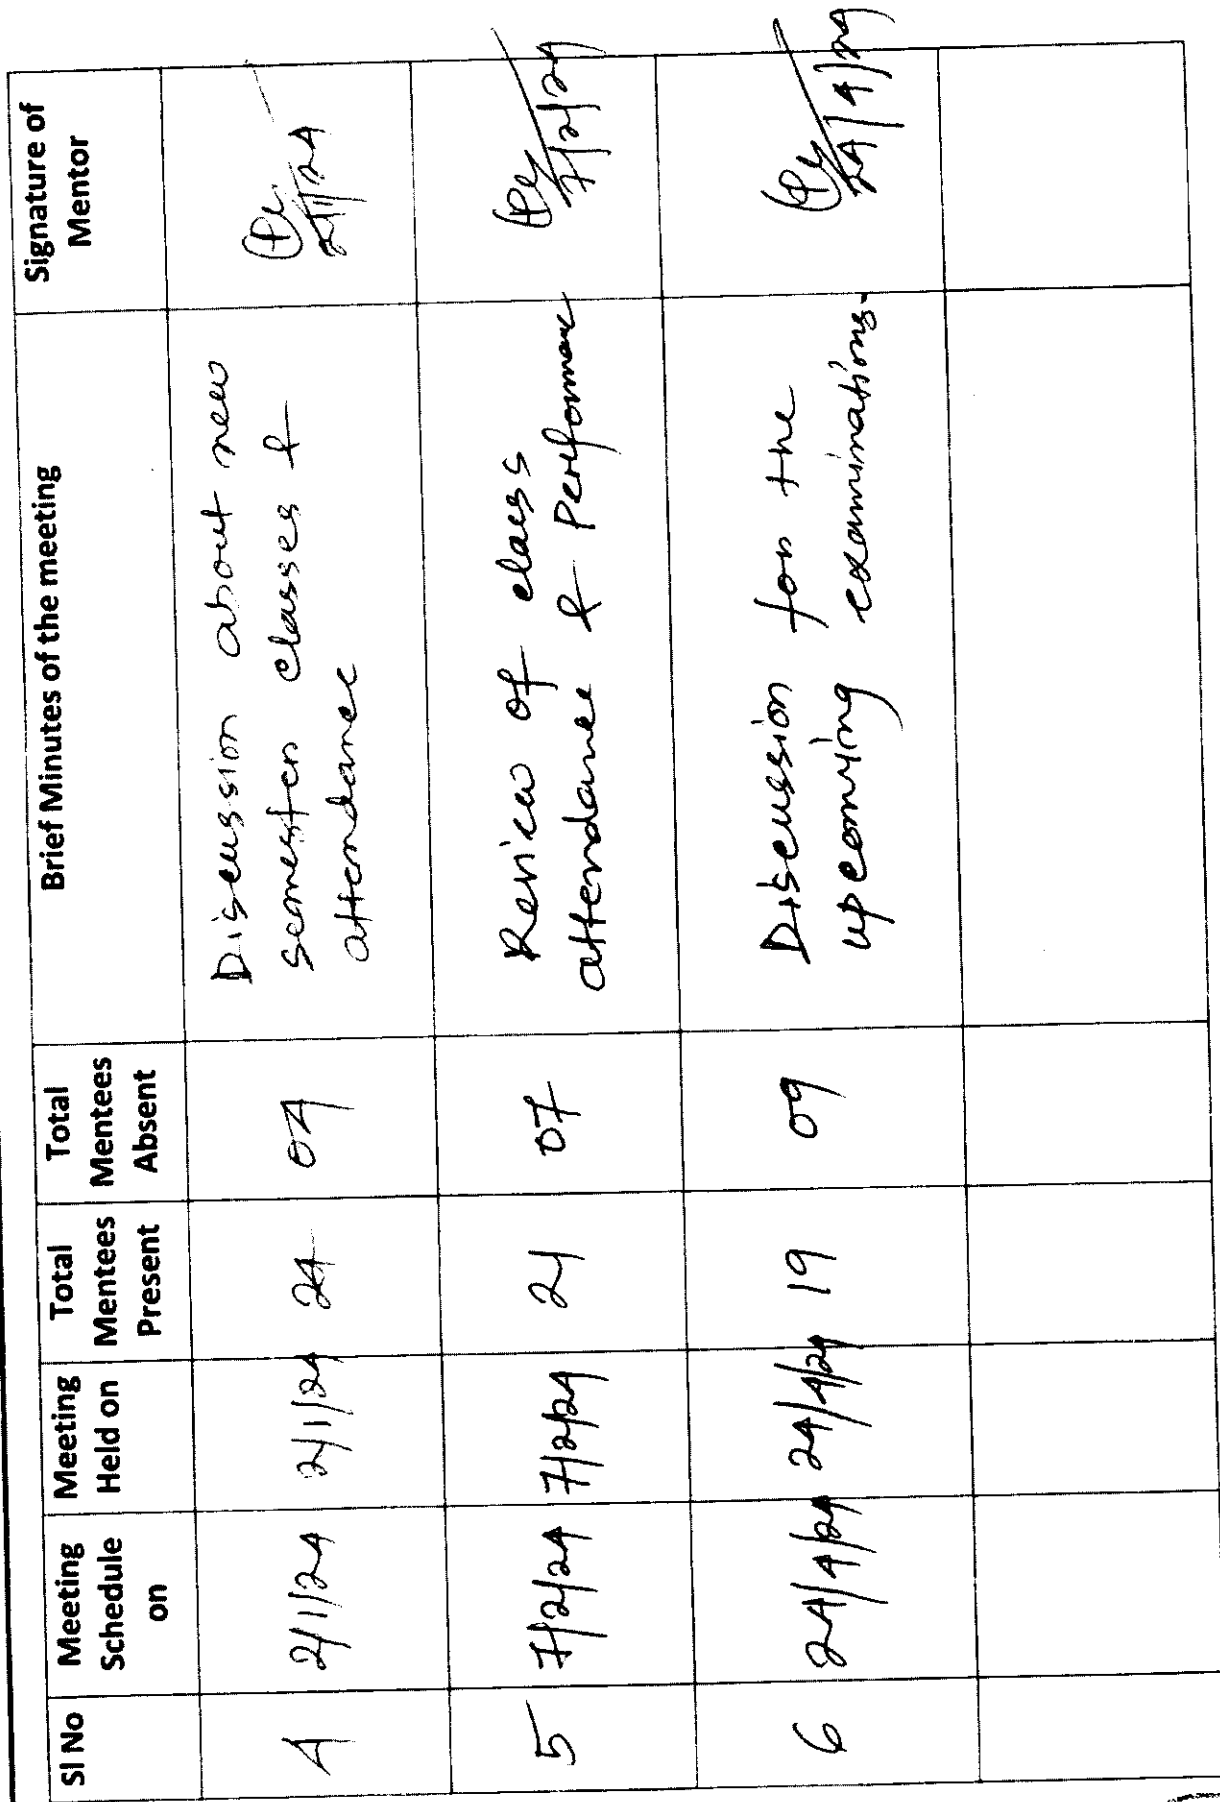 Sl No
Meeting
Schedule
on
Meeting
Held on
Total
Mentees
Present
Total
Mentees
Absent
Brief Minutes of the meeting
Signature of
Mentor
4
2/1/24
2/1/24
24
04
Discussion about new
semester classes &
attendance
2/1/24
5
7/2/24
7/2/24
21
07
Review of class
attendance & Performance
7/2/24
6
24/4/24
24/4/24
19
09
Discussion for the
upcoming examinations.
24/4/24